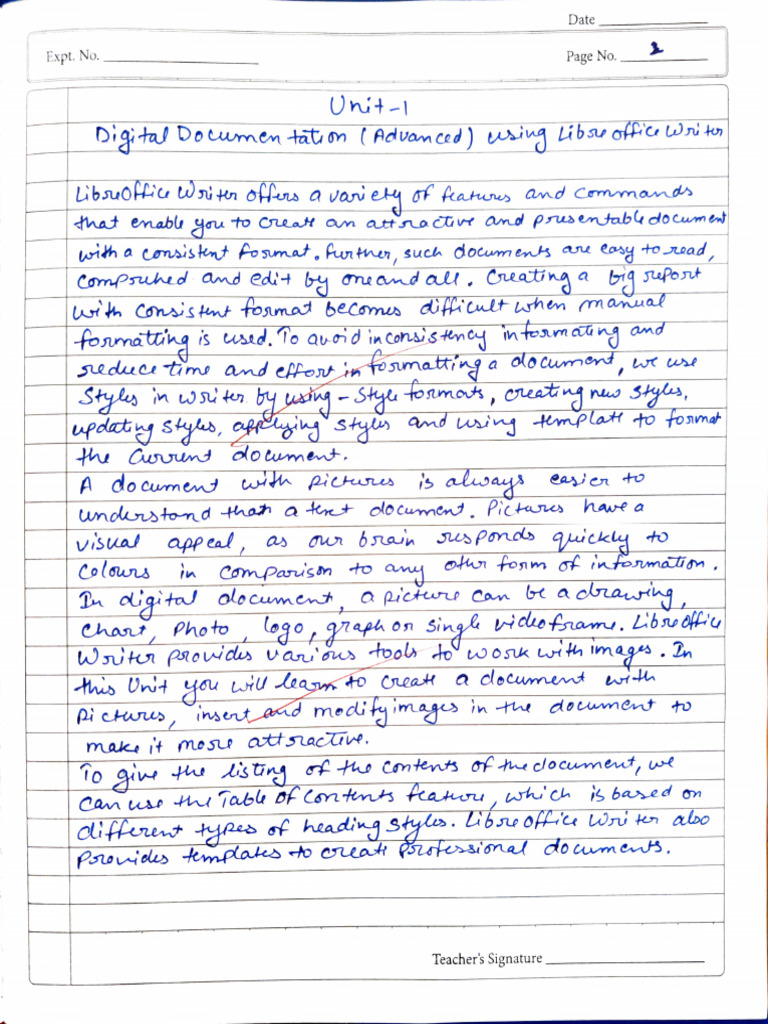 Date
Expt. No.
Page No. 2
Unit-1
Digital Documentation (Advanced) using Libreoffice Writer
LibreOffice Writer offers a variety of features and commands
that enable you to create an attractive and presentable document
with a consistent format. Further, such documents are easy to read,
comprehed and edit by one and all. Creating a big report
with consistent format becomes difficult when manual
formatting is used. To avoid inconsistency in formating and
reduce time and effort in formatting a document, we use
Styles in Writer by using - Style formats, creating new styles,
updating styles, applying styles and using template to format
the current document.
A document with pictures is always easier to
understand than a text document. Pictures have a
visual appeal, as our brain responds quickly to
colours in comparison to any other form of information.
In digital document, a picture can be a drawing,
chart, photo, logo, graph or single videoframe. LibreOffice
Writer provides various tools to work with images. In
this Unit you will learn to create a document with
pictures, insert and modify images in the document to
make it more attractive.
To give the listing of the contents of the document, we
can use the Table of Contents feature, which is based on
different types of heading styles. LibreOffice Writer also
provides templates to create professional documents.
Teacher's Signature